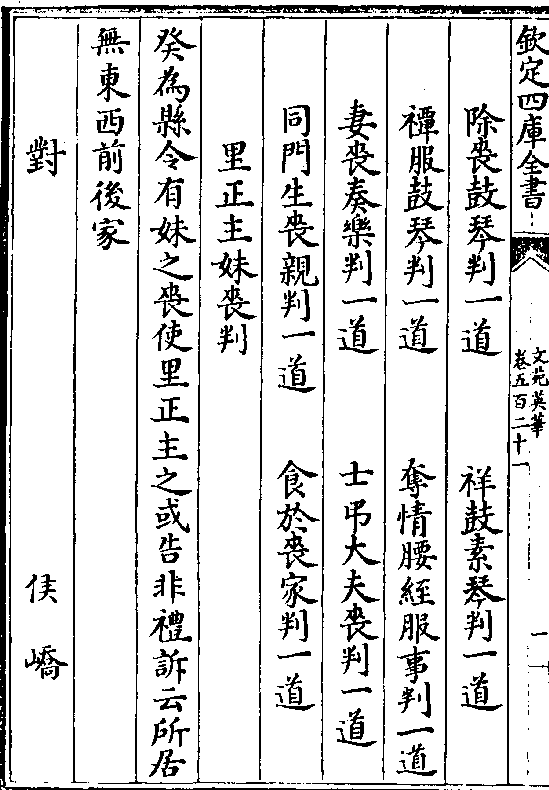 欽定四庫全書
文苑英華
卷五百二十一
一
除喪鼓琴判一道 祥鼓素琴判一道
禫服鼓琴判一道 奪情腰絰服事判一道
妻喪奏樂判一道 士弔大夫喪判一道
同門生喪親判一道 食於喪家判一道
里正主妹喪判
癸為縣令有妹之喪使里正主之或告非禮訴云所居
無東西前後家
對 侯嶠